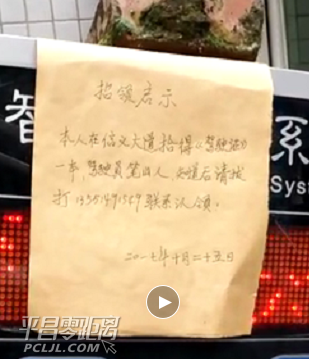 招领启示
智
系
Syst
本人在信义大道拾得《驾驶证》
一本，驾驶员
人，
后请拨
打
联系认领。
二〇一七年十月二十五日
平昌零距离
PCLJL.COM